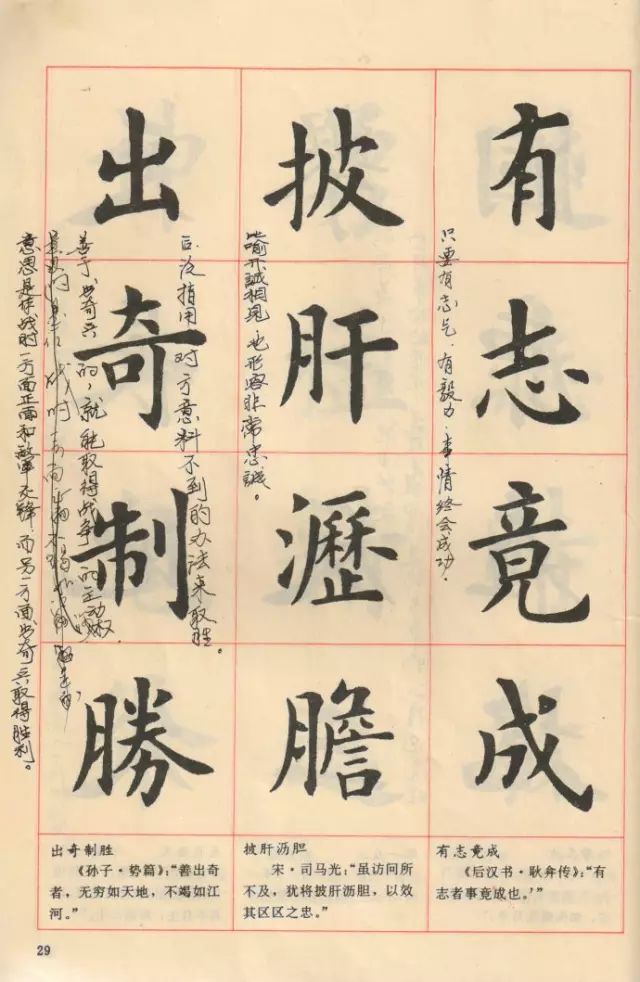 有志竟成
只要有志气．有毅力．事情终会成功．
披肝瀝膽
喻开誠相見．也形容非常忠誠。
出奇制勝
指用对方意料不到的办法来取胜。
善于出奇兵的，就能取得战争的主动权．
意思是作战时一方面正面和敵軍交锋．而另一方面出奇兵取得胜利。
出奇制胜
《孙子·势篇》：“善出奇
者，无穷如天地，不竭如江
河。”
披肝沥胆
宋·司马光：“虽访问所
不及，犹将披肝沥胆，以效
其区区之忠。”
有志竟成
《后汉书·耿弇传》：“有
志者事竟成也。’”
29